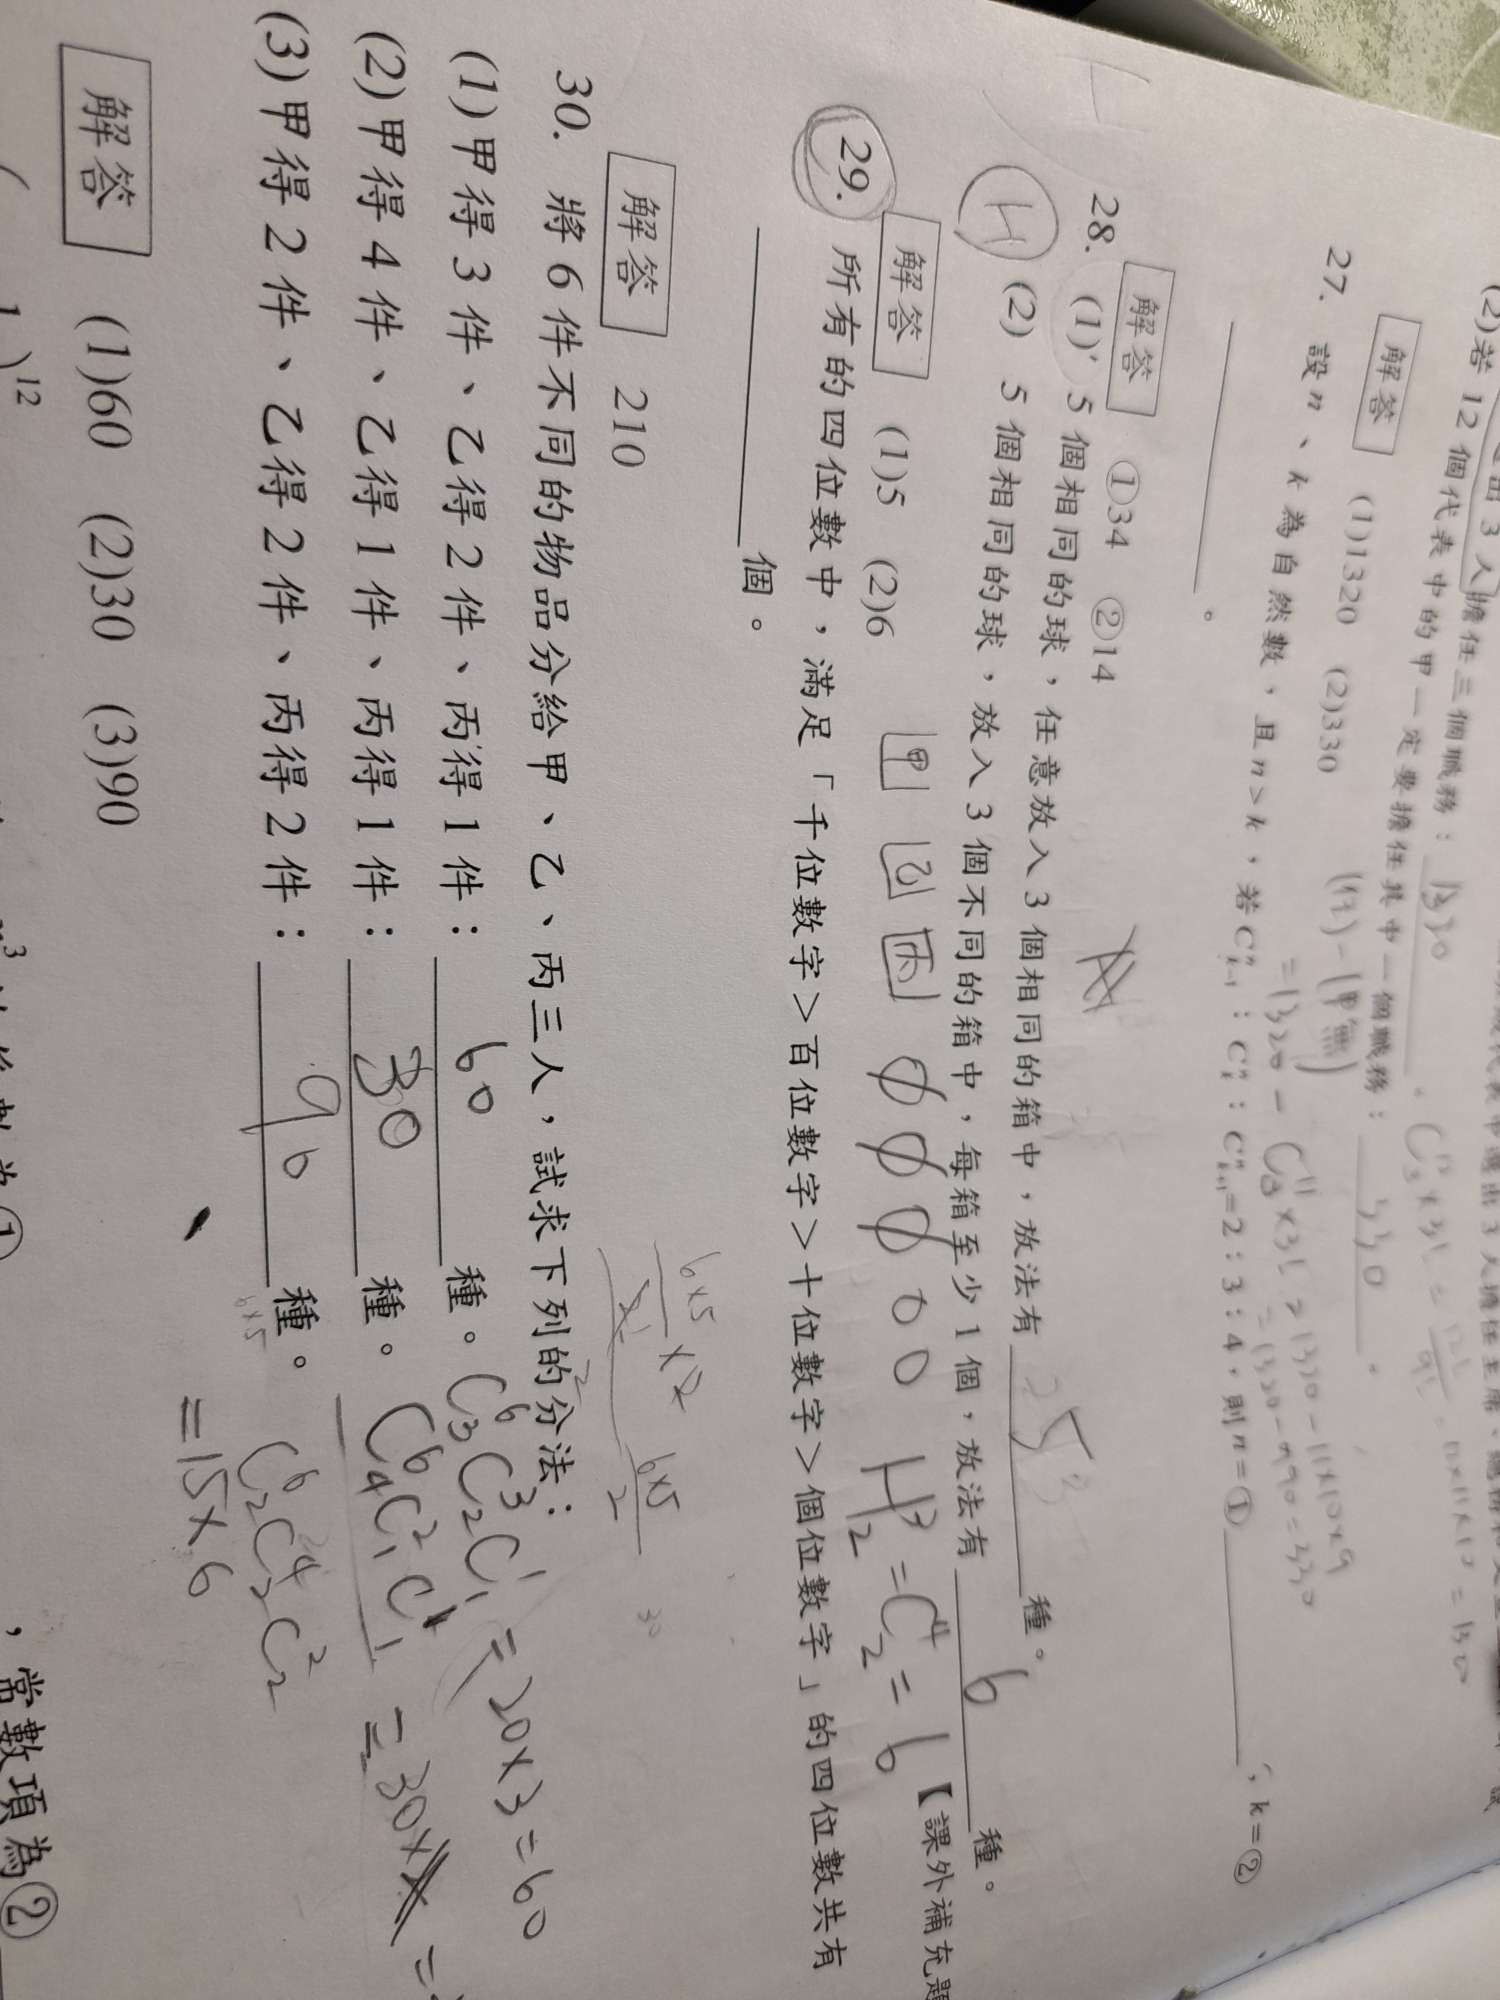 (2)若 12 個代表中的甲一定要擔任其中一個職務：330
解答 (1)1320 (2)330
27. 設 n、k 為自然數，且 n>k，若 Cⁿₖ₋₁：Cⁿₖ：Cⁿₖ₊₁=2：3：4，則 n=①＿＿＿，k=②
＿＿＿。
解答 ①34 ②14
28. (1) 5 個相同的球，任意放入 3 個相同的箱中，放法有＿＿＿種。
(2) 5 個相同的球，放入 3 個不同的箱中，每箱至少 1 個，放法有 6 種。【課外補充題
H
解答 (1)5 (2)6
甲 乙 丙 0 0 0 0 0 H³₂ = C⁴₂ = 6
29. 所有的四位數中，滿足「千位數字＞百位數字＞十位數字＞個位數字」的四位數共有
＿＿＿個。
解答 210
30. 將 6 件不同的物品分給甲、乙、丙三人，試求下列的分法：
(1)甲得 3 件、乙得 2 件、丙得 1 件：60 種。 C⁶₃C³₂C¹₁ = 20×3=60
(2)甲得 4 件、乙得 1 件、丙得 1 件：30 種。 C⁶₄C²₁C¹₁ = 30
(3)甲得 2 件、乙得 2 件、丙得 2 件：90 種。 C⁶₂C⁴₂C²₂
=15×6
解答 (1)60 (2)30 (3)90
，常數項為②